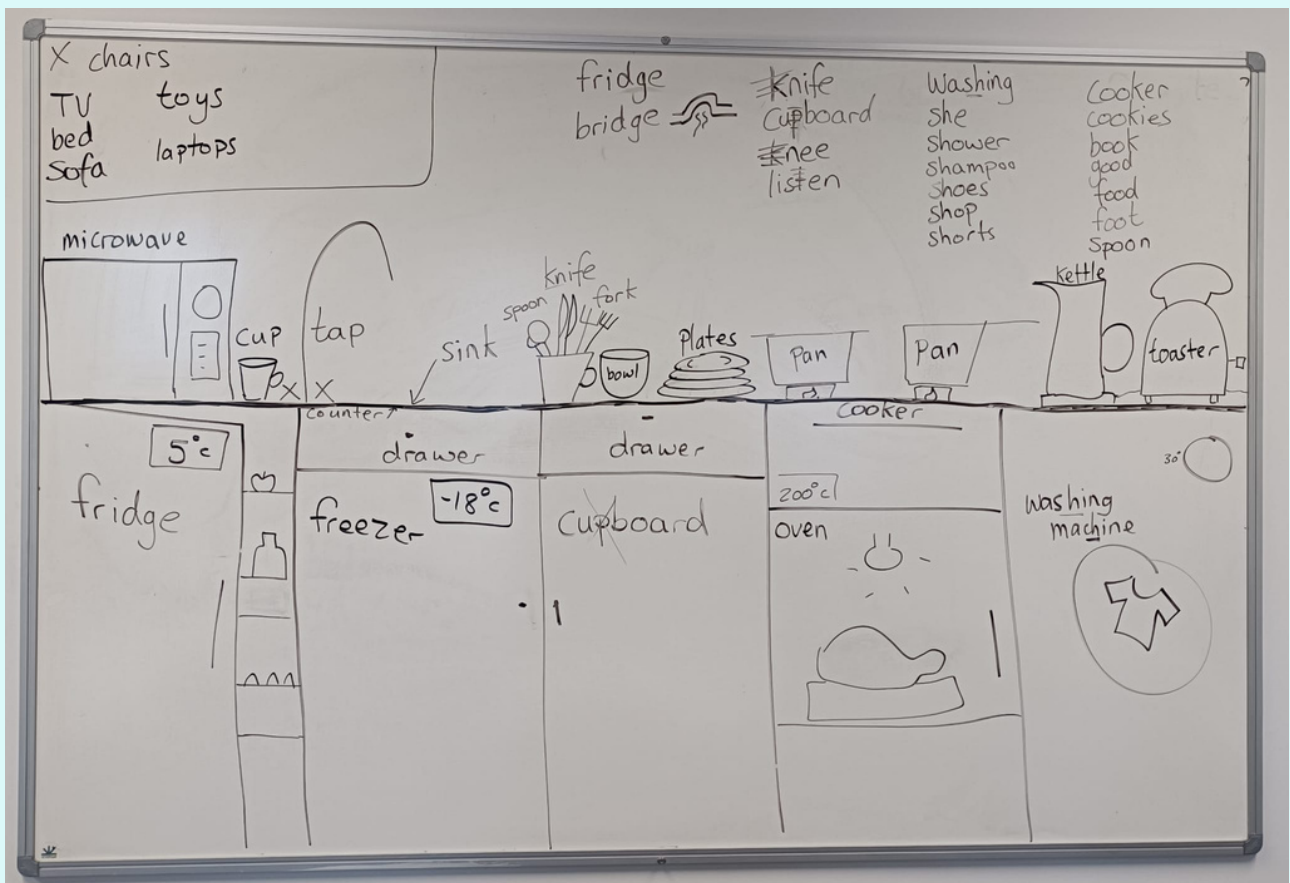 X chairs
TV toys
bed
sofa laptops
fridge
bridge
Knife
Cupboard
Knee
listen
Washing
she
shower
shampoo
shoes
shop
shorts
Cooker
cookies
book
good
food
foot
spoon
microwave
cup
tap
sink
spoon
knife
fork
bowl
Plates
Pan
Pan
Kettle
toaster
X X
Counter
drawer
drawer
Cooker
5°c
fridge
-18°c
freezer
cupboard
200°c
oven
30°
washing
machine